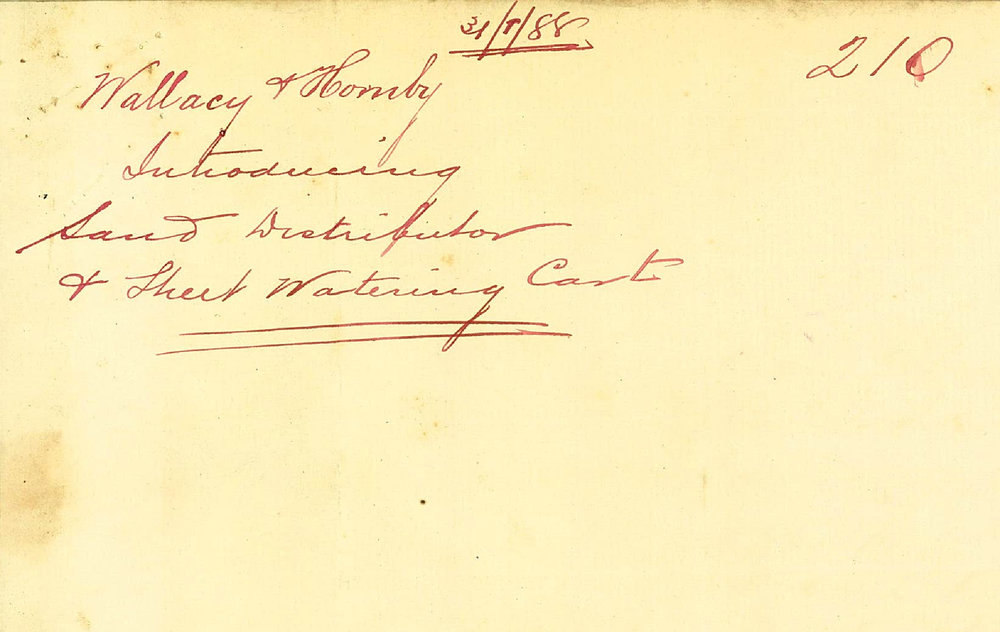 31/1/88
210
Wallacy & Hornby
Introducing
Sand Distributor
& Street Watering Cart